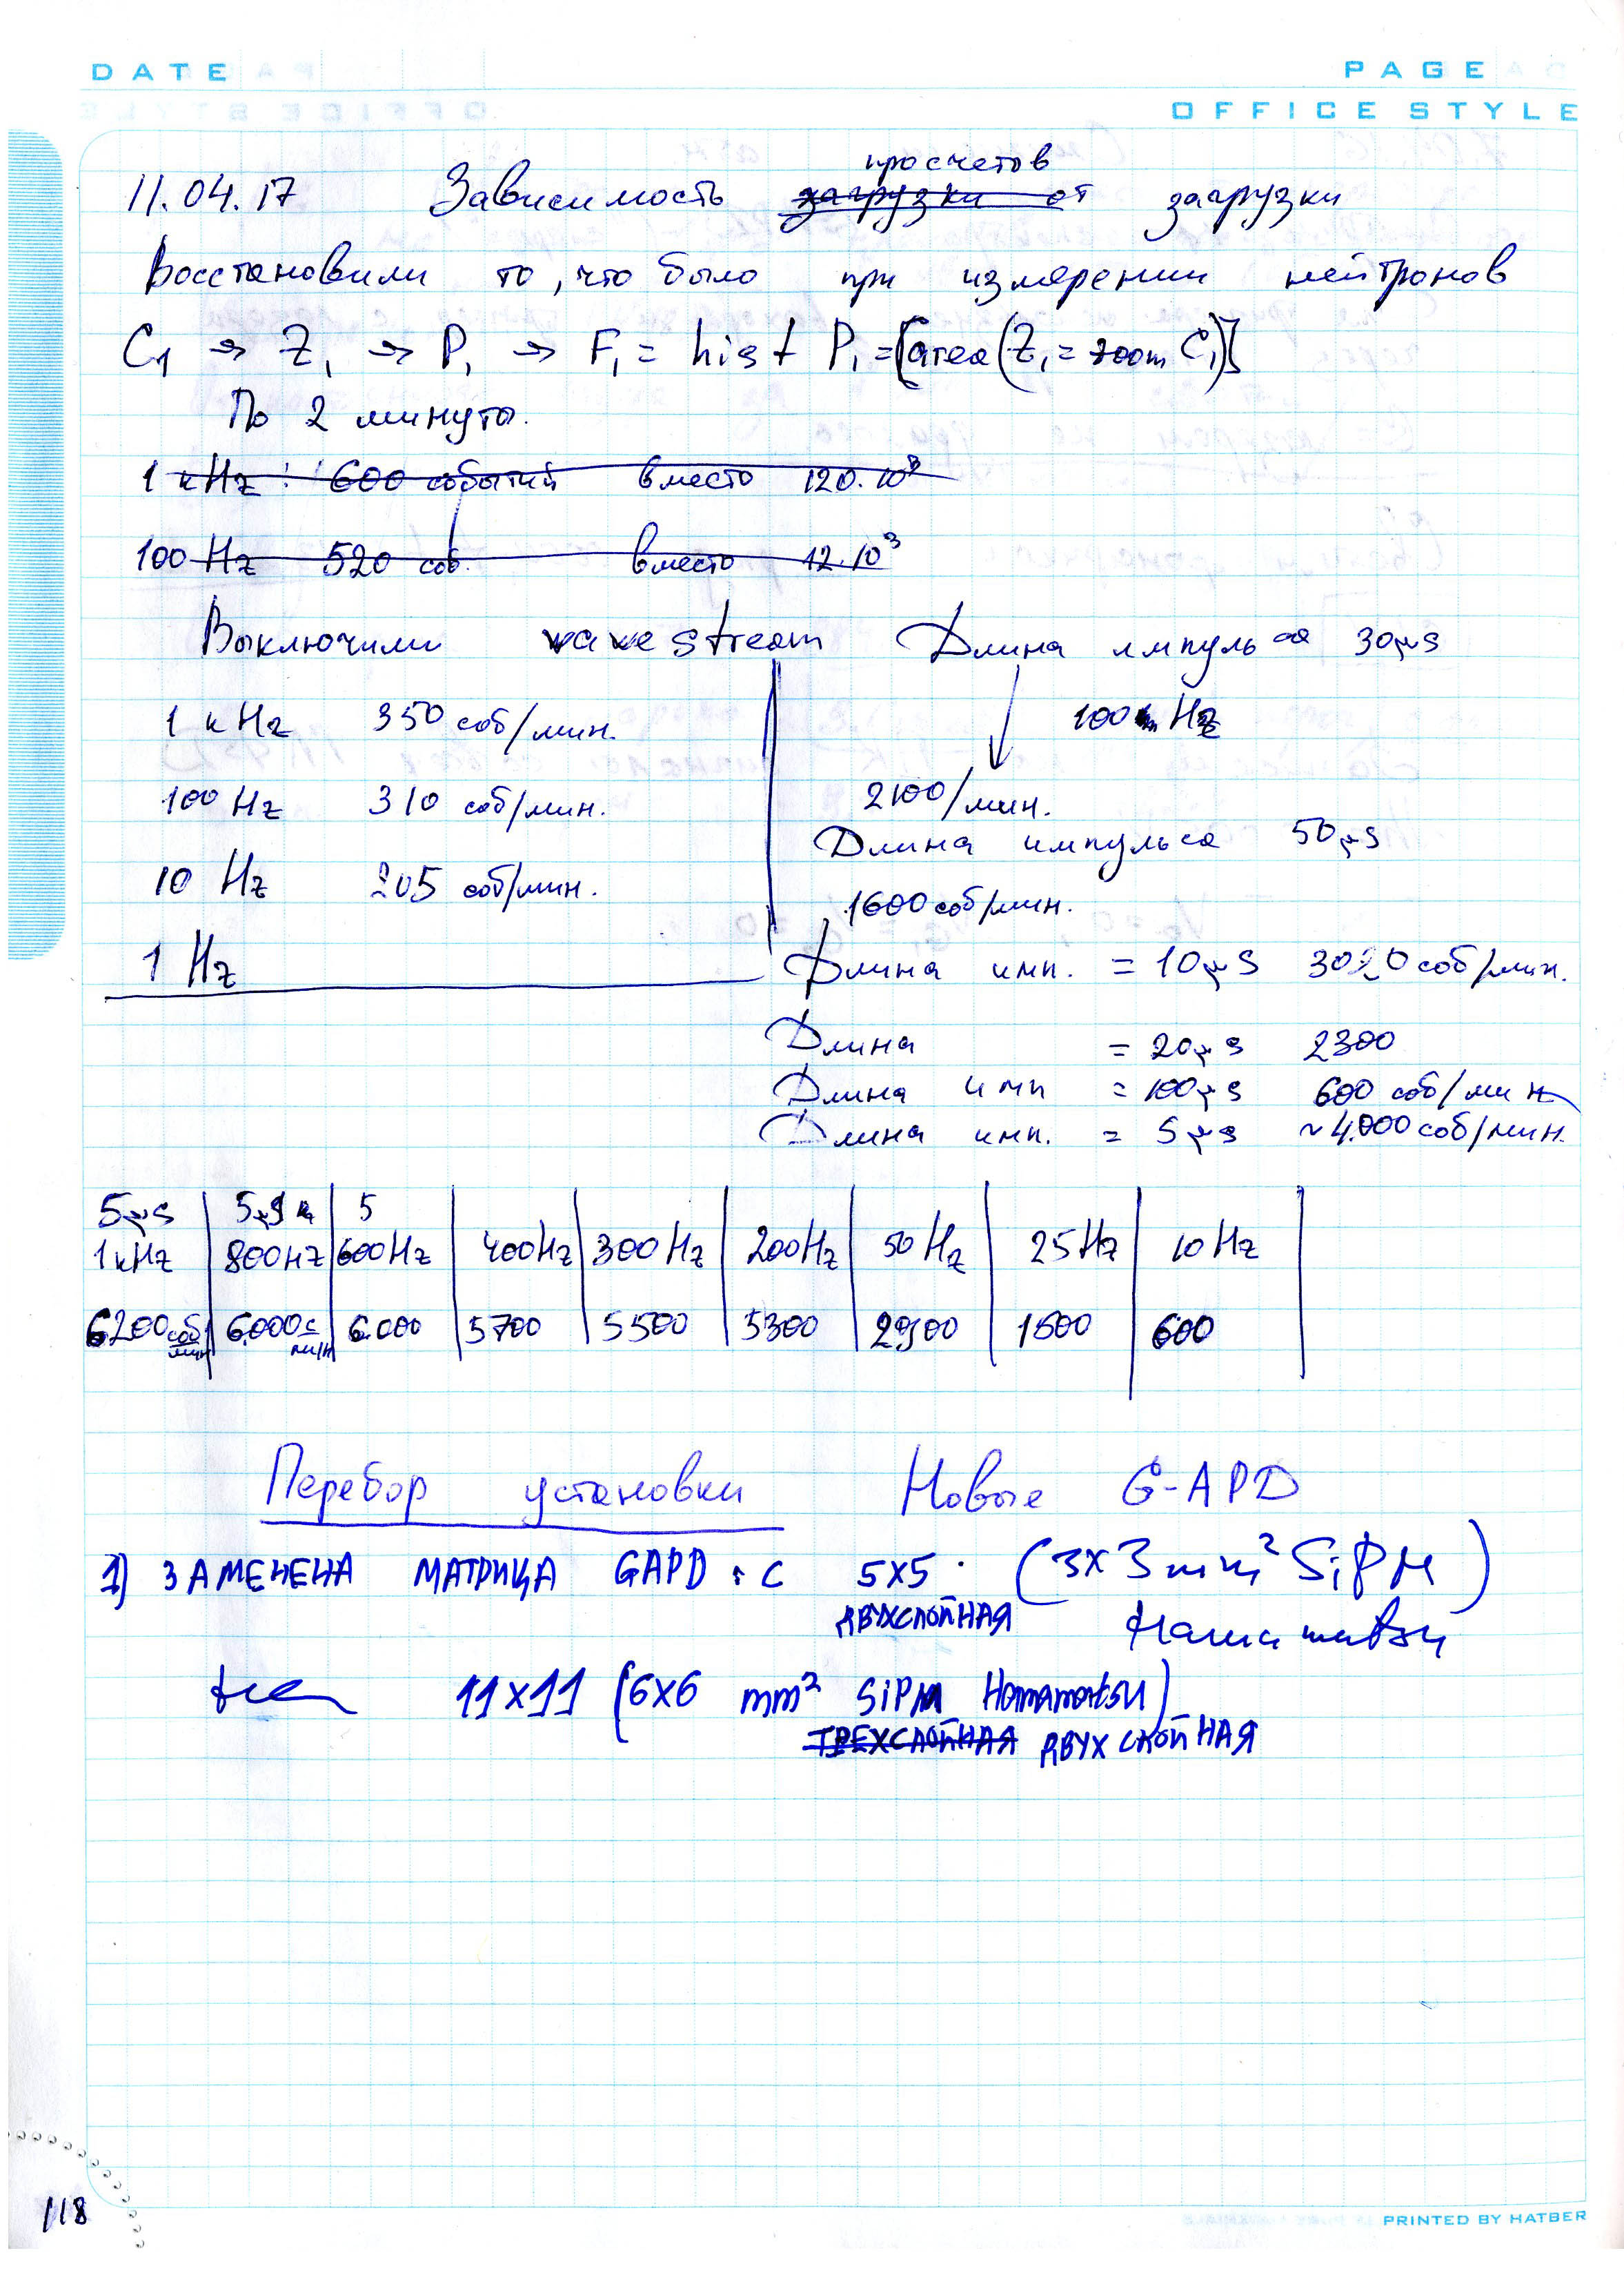 DATE
PAGE
OFFICE STYLE
просчетов
11.04.17 Зависимость загрузки от загрузки
Восстановили то, что было при измерении нейтронов
C1 → Z1 → P1 → F1 = hist P1 = [area(Z1 = zoom C1)]
По 2 минуты.
1 kHz : 600 событий вместо 120.10³
100 Hz 520 соб. вместо 12.10³
Выключили wave stream
1 kHz 350 соб/мин.
100 Hz 310 соб/мин.
10 Hz 205 соб/мин.
1 Hz
Длина импульса 30 μs
100 Hz
2100/мин.
Длина импульса 50 μs
1600 соб/мин.
Длина имп. = 10 μs 3020 соб/мин.
Длина = 20 μs 2300
Длина имп = 100 μs 600 соб/мин
Длина имп. = 5 μs ~4.000 соб/мин.
5 μs 5 μs 5
1 kHz 800 Hz 600 Hz 400 Hz 300 Hz 200 Hz 50 Hz 25 Hz 10 Hz
6200 соб/мин 6000 с/мин 6000 5700 5500 5300 2900 1500 600
Перебор установки Новые G-APD
1) ЗАМЕНЕНА МАТРИЦА GAPD : С 5x5 (3x3 mm² SiPM
ДВУХСЛОЙНАЯ Hamamatsu)
на 11x11 (6x6 mm² SiPM Hamamatsu)
ТРЕХСЛОЙНАЯ ДВУХСЛОЙНАЯ
118
PRINTED BY HATBER